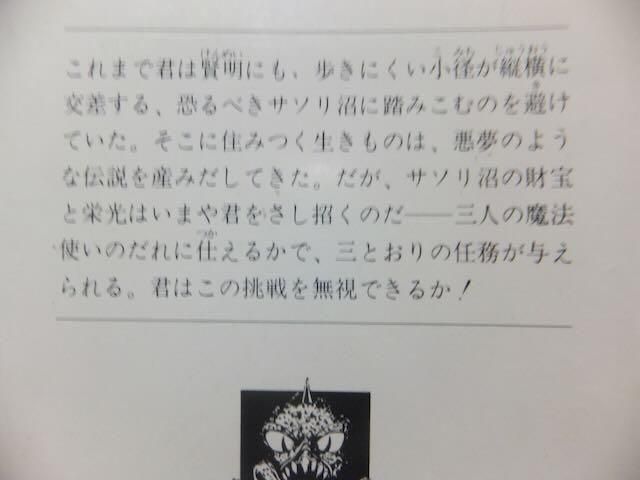 これまで君は賢明にも、歩きにくい小径が縦横に
交差する、恐るべきサソリ沼に踏みこむのを避け
ていた。そこに住みつく生きものは、悪夢のよう
な伝説を産みだしてきた。だが、サソリ沼の財宝
と栄光はいまや君をさし招くのだ――三人の魔法
使いのだれに仕えるかで、三とおりの任務が与え
られる。君はこの挑戦を無視できるか！